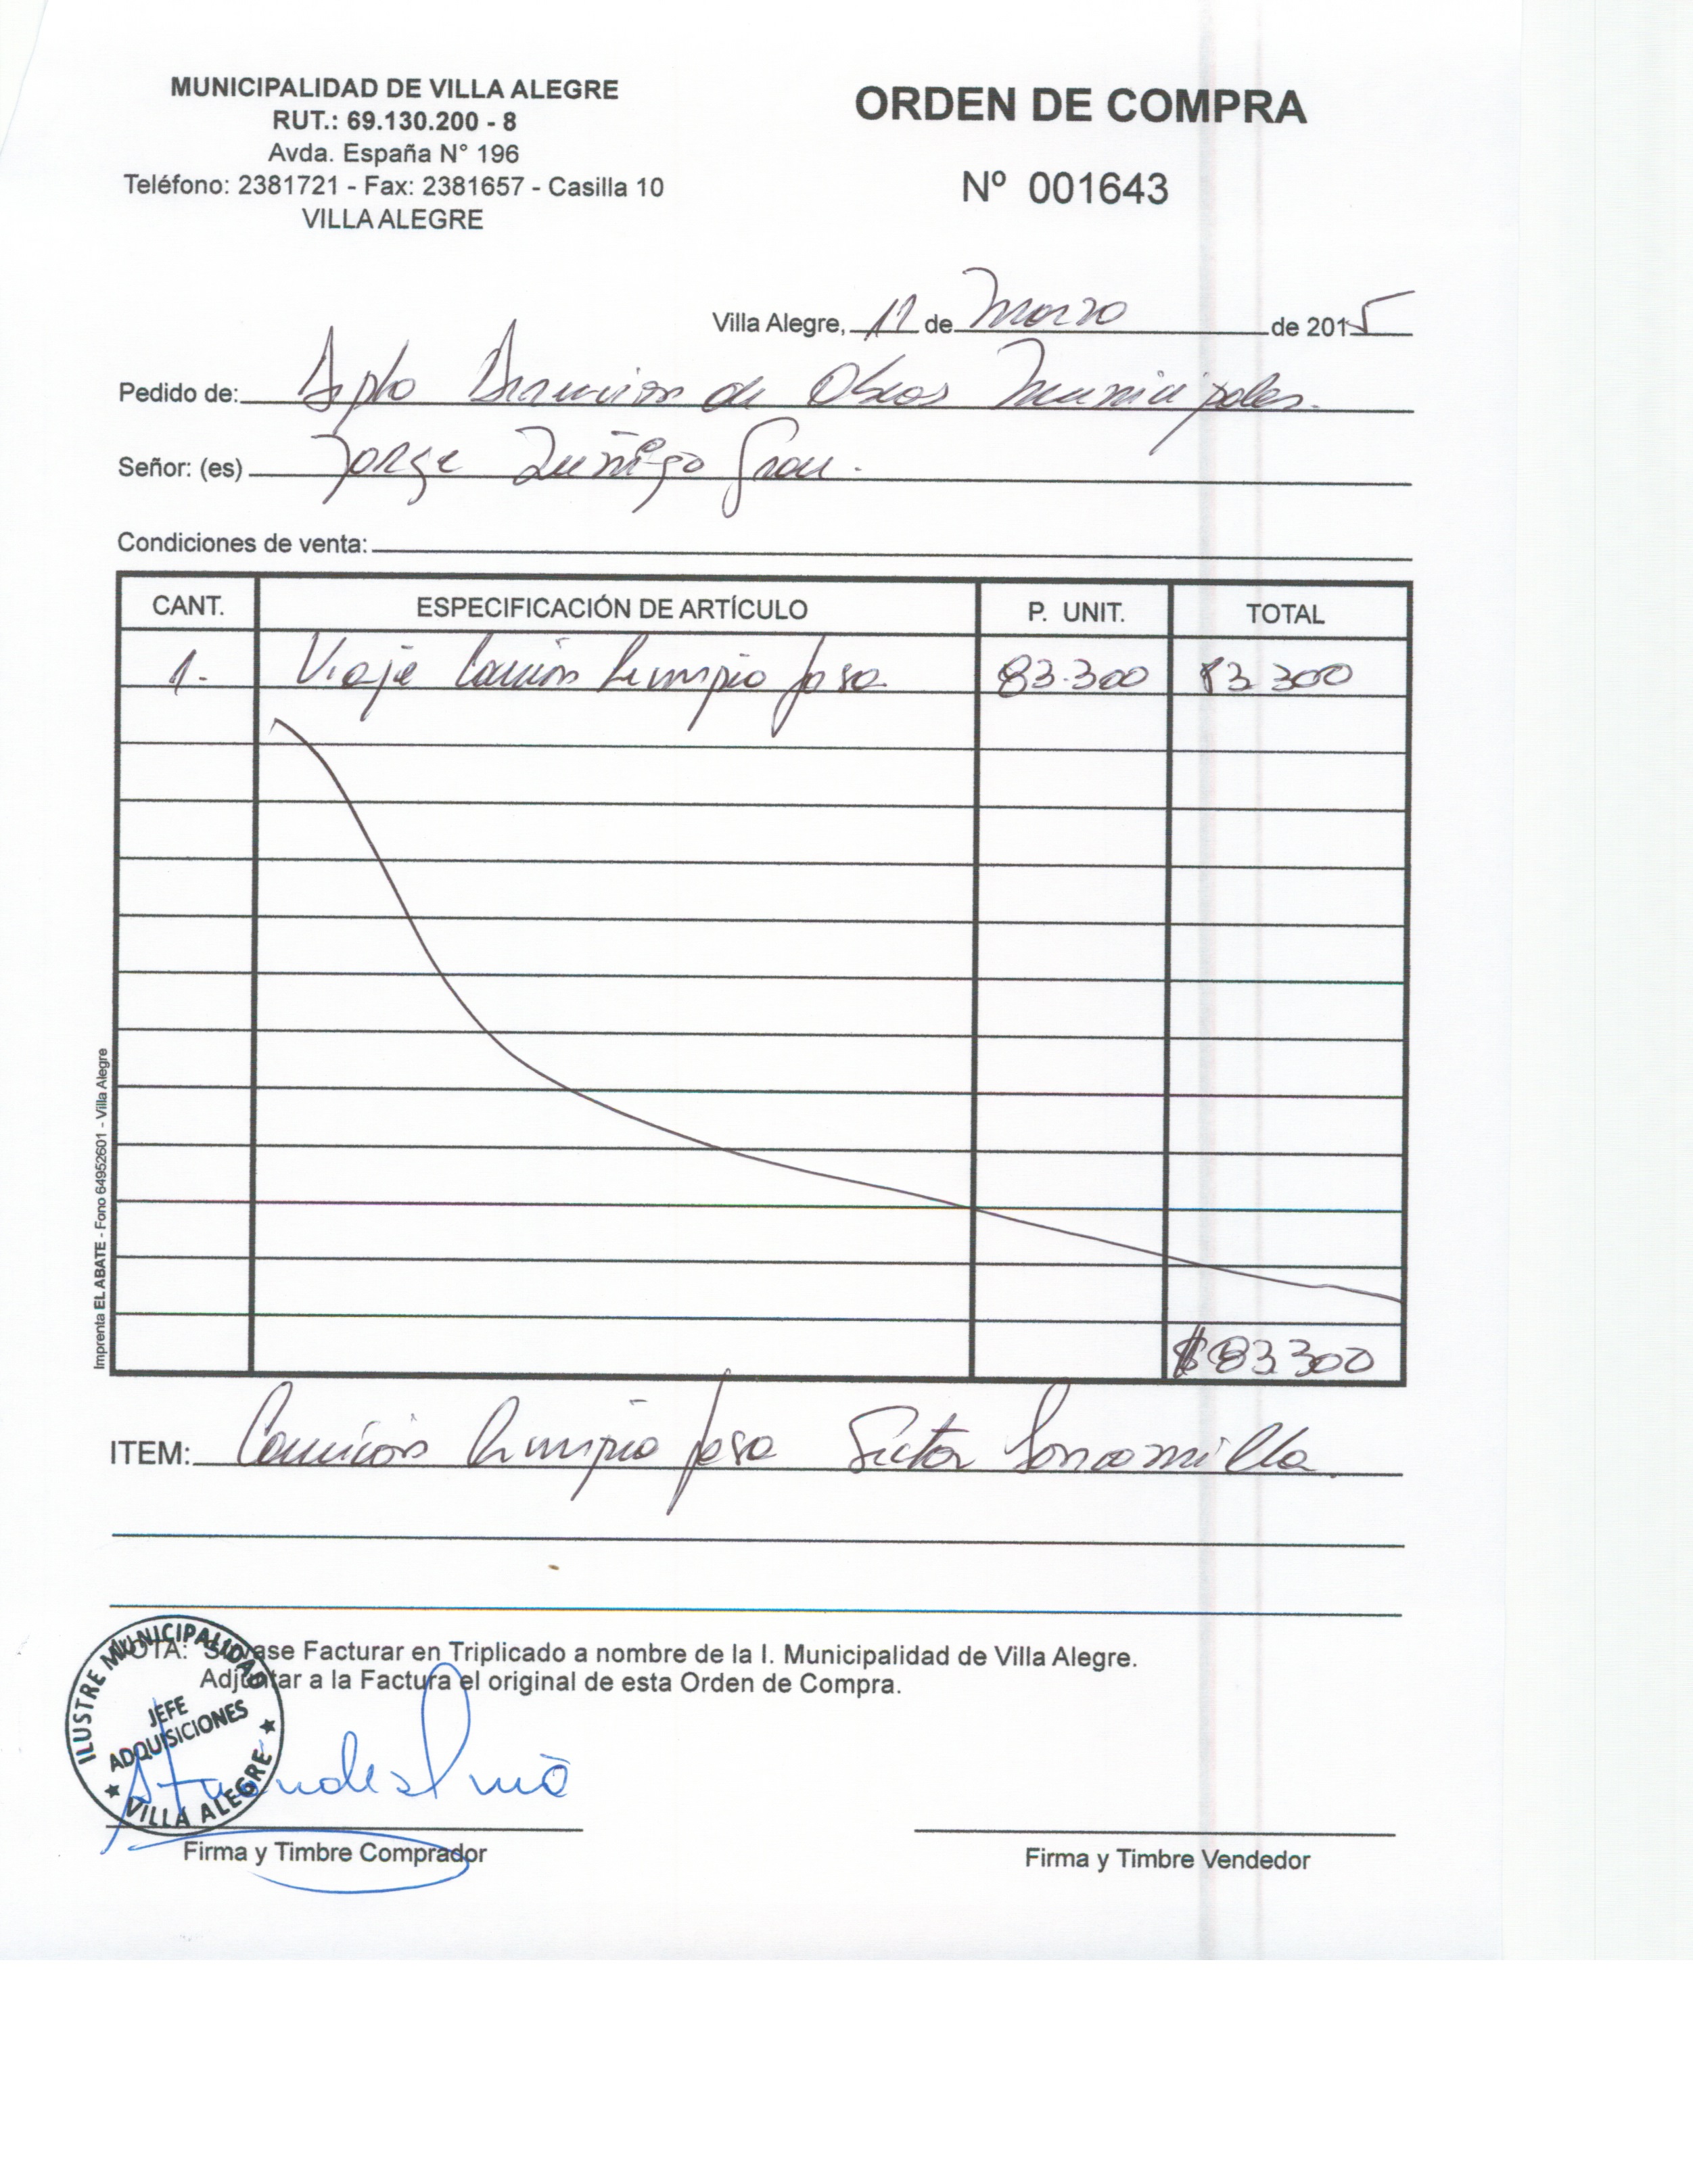 MUNICIPALIDAD DE VILLA ALEGRE
RUT.: 69.130.200 - 8
Avda. España N° 196
Teléfono: 2381721 - Fax: 2381657 - Casilla 10
VILLA ALEGRE
ORDEN DE COMPRA
Nº 001643
Villa Alegre, 11 de Marzo de 2015
Pedido de: Dpto Dirección de Obras Municipales.
Señor: (es) Jorge Zuñiga Grau.
Condiciones de venta:
CANT. ESPECIFICACIÓN DE ARTÍCULO P. UNIT. TOTAL
1. Viaje Camión limpia fosa 83.300 83.300
$83.300
ITEM: Camión limpia fosa Sector Loncomilla.
Imprenta EL ABATE - Fono 64952601 - Villa Alegre
NOTA: Sírvase Facturar en Triplicado a nombre de la I. Municipalidad de Villa Alegre.
Adjuntar a la Factura el original de esta Orden de Compra.
ILUSTRE MUNICIPALIDAD
JEFE
ADQUISICIONES
VILLA ALEGRE
Firma y Timbre Comprador
Firma y Timbre Vendedor